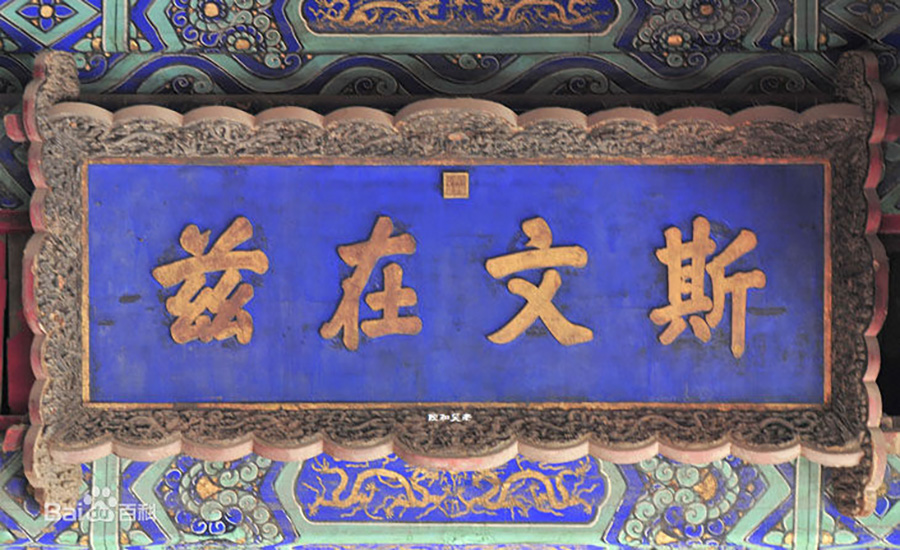 斯文在兹
Bai百科